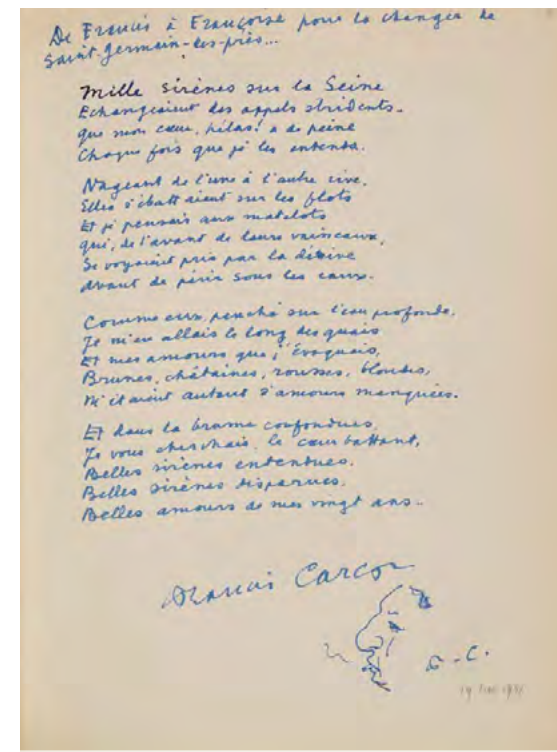 De Francis à Françoise pour la changer de
Saint-Germain-des-prés...
Mille sirènes sur la Seine
Echangeaient des appels stridents.
que mon cœur, hélas! a de peine
Chaque fois que je les entends.
Nageant de l'une à l'autre rive,
Elles s'ébattaient sur les flots
Et je pensais aux matelots
qui, de l'avant de leurs vaisseaux,
Se voyaient pris par la dérive
avant de périr sous les eaux.
Comme eux, penché sur l'eau profonde,
Je m'en allais le long des quais
Et mes amours que j'évoquais,
Brunes, châtaines, rousses, blondes,
M'étaient autant d'amours manquées.
Et dans la brume confondues,
Je vous cherchais, le cœur battant,
Belles sirènes entendues,
Belles sirènes disparues,
Belles amours de mes vingt ans..
Francis Carco
F.-C.